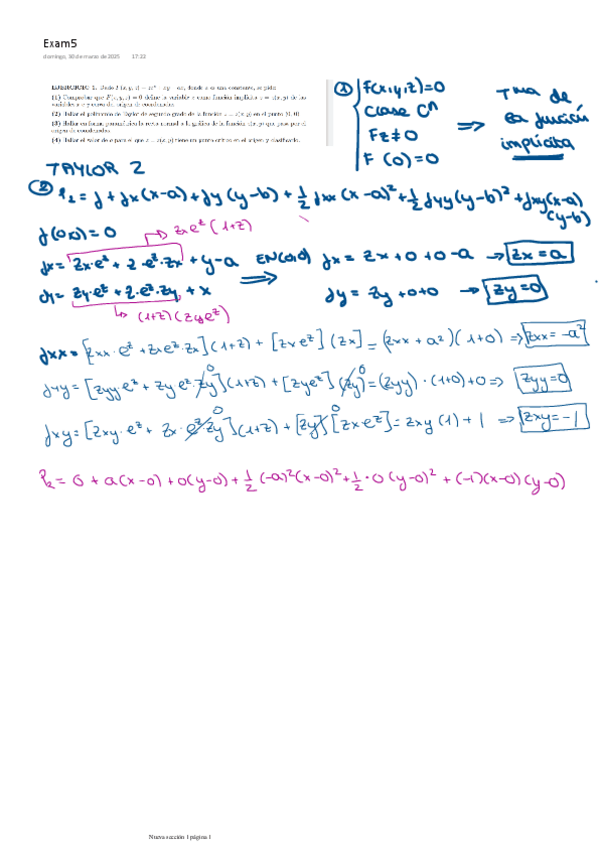 Exam5
domingo, 30 de marzo de 2025 17:22
EJERCICIO 1. Dado F(x, y, z) = ze^z + xy − ax, donde a es una constante, se pide:
(1) Comprobar que F(x, y, z) = 0 define la variable z como función implícita z = z(x, y) de las
variables x e y cerca del origen de coordenadas.
(2) Hallar el polinomio de Taylor de segundo grado de la función z = z(x, y) en el punto (0, 0).
(3) Hallar en forma paramétrica la recta normal a la gráfica de la función z(x, y) que pasa por el
origen de coordenadas.
(4) Hallar el valor de a para el que z = z(x, y) tiene un punto crítico en el origen y clasificarlo.
① F(x,y,z)=0
Clase Cⁿ
Fz≠0
F(0)=0
=> Tma de
la función
implícita
TAYLOR 2
② P₂ = f + fx(x-a) + fy(y-b) + 1/2 fxx(x-a)² + 1/2 fyy(y-b)² + fxy(x-a)
(y-b)
f(0,0)=0 → zxe^z(1+z)
fx = zx·e^z + z·e^z·zx + y-a EN(0,0) => fx = zx+0+0-a → zx=a
fy = zy·e^z + z·e^z·zy + x fy = zy+0+0 → zy=0
↳ (1+z)(zye^z)
fxx = [zxx·e^z + zxe^z·zx](1+z) + [zxe^z](zx) = (zxx+a²)(1+0) => zxx=-a²
fyy = [zyy·e^z + zye^z·zy](1+z) + [zye^z](zy) = (zyy)·(1+0)+0 => zyy=0
fxy = [zxy·e^z + zx·e^z zy](1+z) + [zy][zxe^z] = zxy(1)+1 => zxy=-1
P₂ = 0 + a(x-0) + 0(y-0) + 1/2(-a)²(x-0)² + 1/2·0(y-0)² + (-1)(x-0)(y-0)
Nueva sección 1 página 1